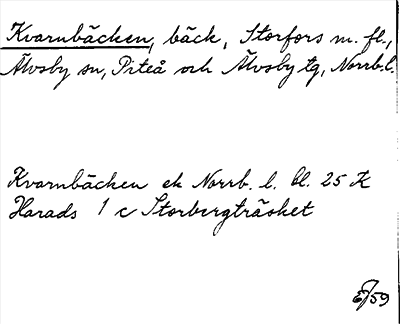 Kvarnbäcken, bäck, Storfors m. fl.,
Älvsby sn, Piteå och Älvsby tg, Norrb.l.
Kvarnbäcken ek Norrb. l. bl. 25 K
Harads 1 c Storbergträsket
/59